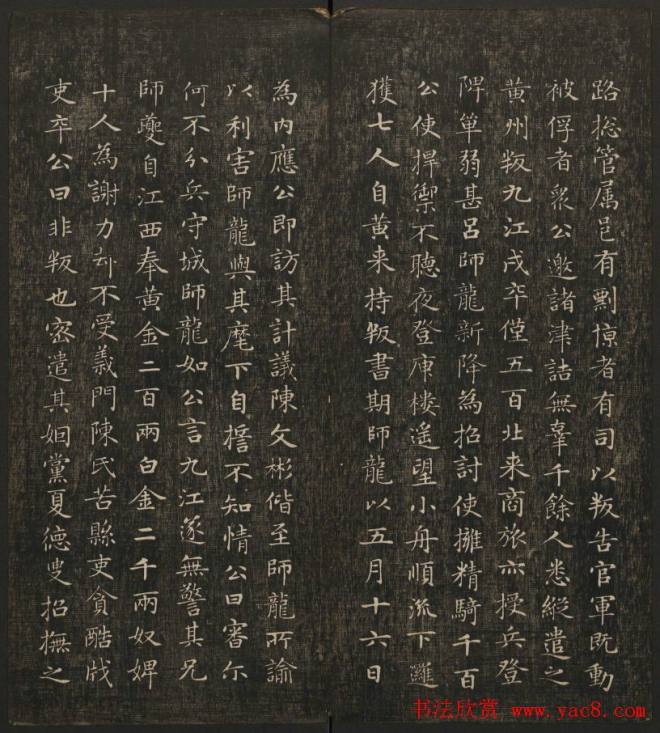 路揔管属邑有剽惊者有司以叛告官軍既動
被俘者衆公邀諸津詰無辜千餘人悉縱遣之
黄州叛九江戍卒僅五百北来商旅亦授兵登
陴单弱甚吕師龍新降為招討使擁精騎千百
公使捍禦不聽夜登庾樓遥望小舟順流下邏
獲七人自黄来持叛書期師龍以五月十六日
為内應公即訪其計議陳文彬偕至師龍所諭
以利害師龍與其麾下自擔不知情公曰審尔
何不分兵守城師龍如公言九江遂無警其兄
師夔自江西奉黄金二百兩白金二千兩奴婢
十人為謝力却不受義門陳氏苦縣吏貪酷戕
吏卒公曰非叛也密遣其姻黨夏德叟招撫之
书法欣赏 www.yac8.com